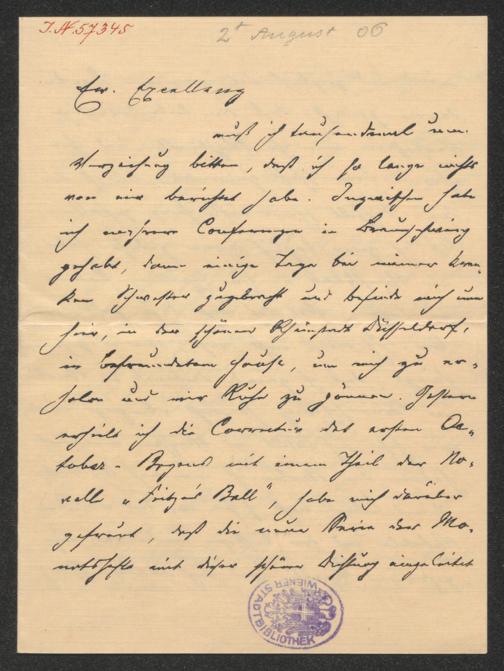 J.N. 57345
2t August 06
Ew. Excellenz
muß ich tausendmal um
Verzeihung bitten, daß ich so lange nichts
von mir berichtet habe. Inzwischen habe
ich mehrere Conferenzen in Braunschweig
gehabt, dann einige Tage bei meiner kran-
ken Schwester zugebracht und befinde mich nun
hier, in der schönen Rheinstadt Düsseldorf,
in befreundetem Hause, um mich zu er-
holen und mir Ruhe zu gönnen. Gestern
erhielt ich die Correctur des ersten Oc-
tober-Bogens mit einem Theil der No-
velle „Fritzi's Ball", habe mich darüber
gefreut, daß die neue Serie der Mo-
natshefte mit dieser schönen Dichtung eingeleitet
WIENER STADTBIBLIOTHEK